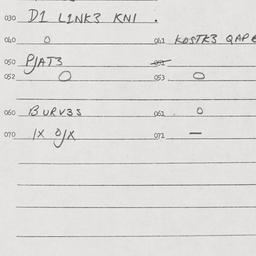 030 D1 L1NK3 KN1 .
040 O 041 KOSTK3 QAP
050 PJAT3 051
052 O 053 O
060 BURV3S 061 O
070 1X OJX 071 —